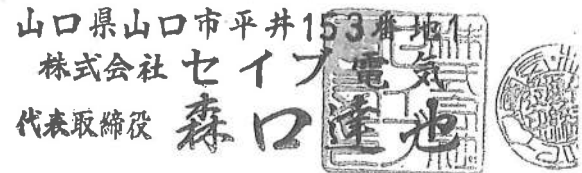 山口県山口市平井153番地1
株式会社セイブ電気
代表取締役 森口達也